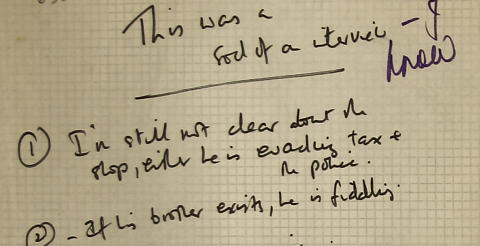 This was a
sod of a interview - I
know
① I'm still not clear about the
shop, either he is evading tax +
the police.
② - If his brother exists, he is fiddling.